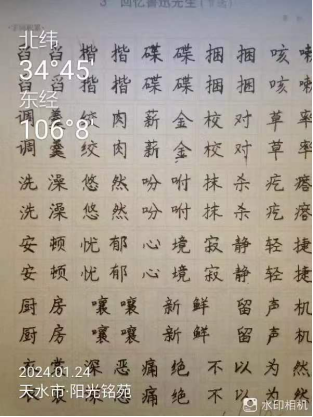 3 回忆鲁迅先生(节选)
北纬
34°45'
东经
106°8'
舀 舀 楷 楷 碟 碟 捆 捆 咳 嗽
舀 舀 楷 楷 碟 碟 捆 捆 咳 嗽
调 羹 绞 肉 薪 金 校 对 草 率
调 羹 绞 肉 薪 金 校 对 草 率
洗 澡 悠 然 吩 咐 抹 杀 疙 瘩
洗 澡 悠 然 吩 咐 抹 杀 疙 瘩
安 顿 忧 郁 心 境 寂 静 轻 捷
安 顿 忧 郁 心 境 寂 静 轻 捷
厨 房 嚷 嚷 新 鲜 留 声 机
厨 房 嚷 嚷 新 鲜 留 声 机
深 恶 痛 绝 不 以 为 然
深 恶 痛 绝 不 以 为 然
2024.01.24
天水市·阳光铭苑
水印相机